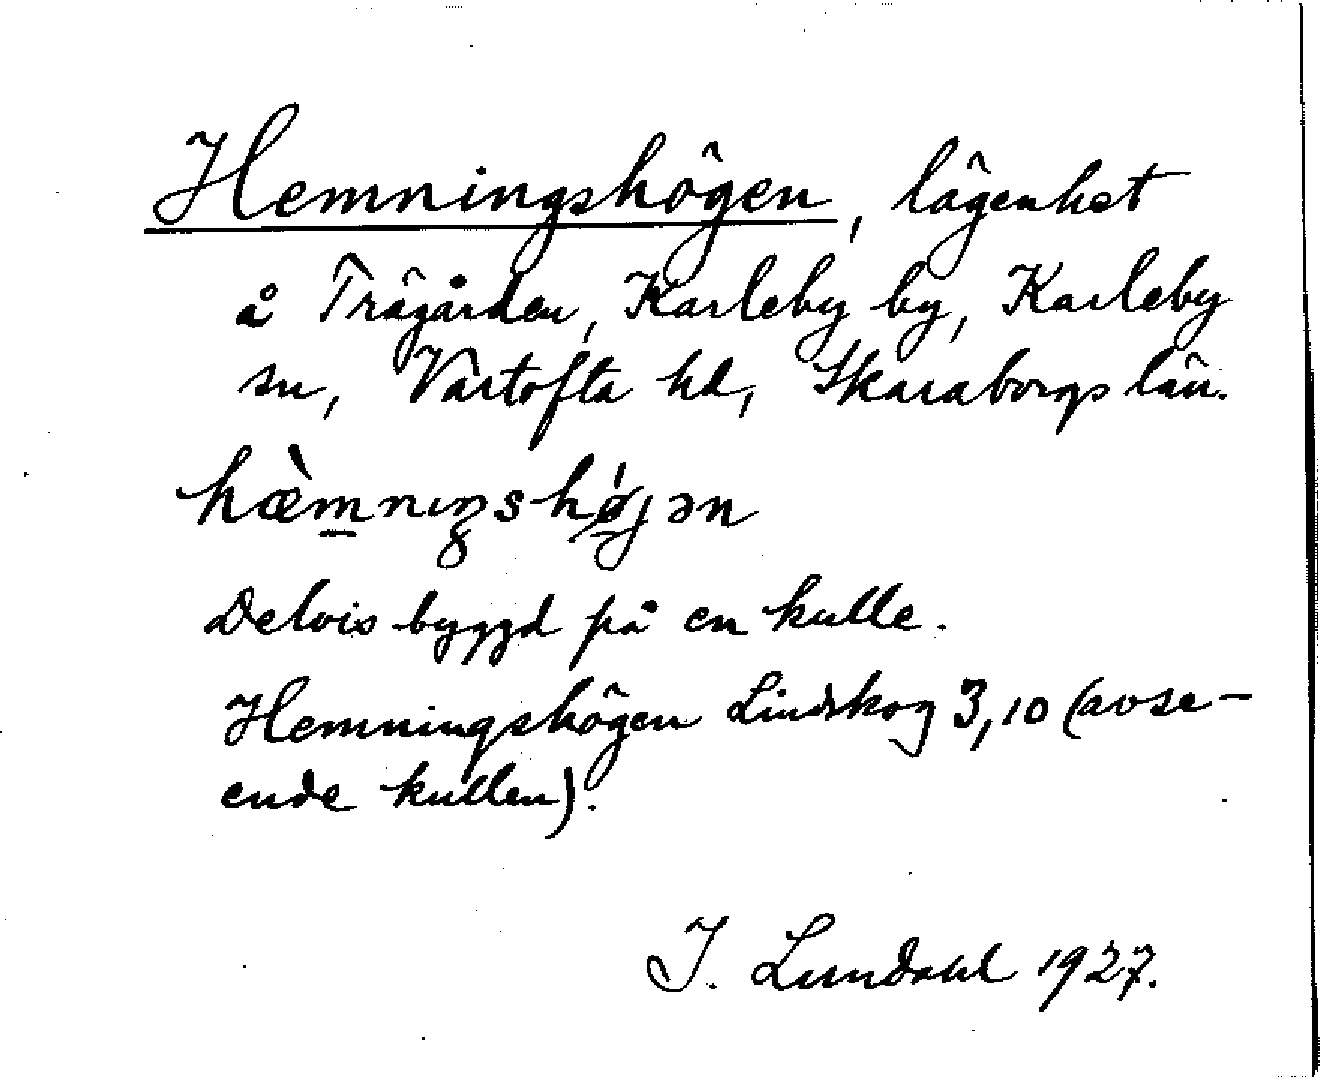 Hemningshögen, lägenhet
å Trägården, Karleby by, Karleby
sn, Vartofta hd, Skaraborgs län.
hæ̀mnıŋshø̍jən
Delvis byggd på en kulle.
Hemningshögen Lindskog 3,10 (avse-
ende kullen).
I. Lundahl 1927.